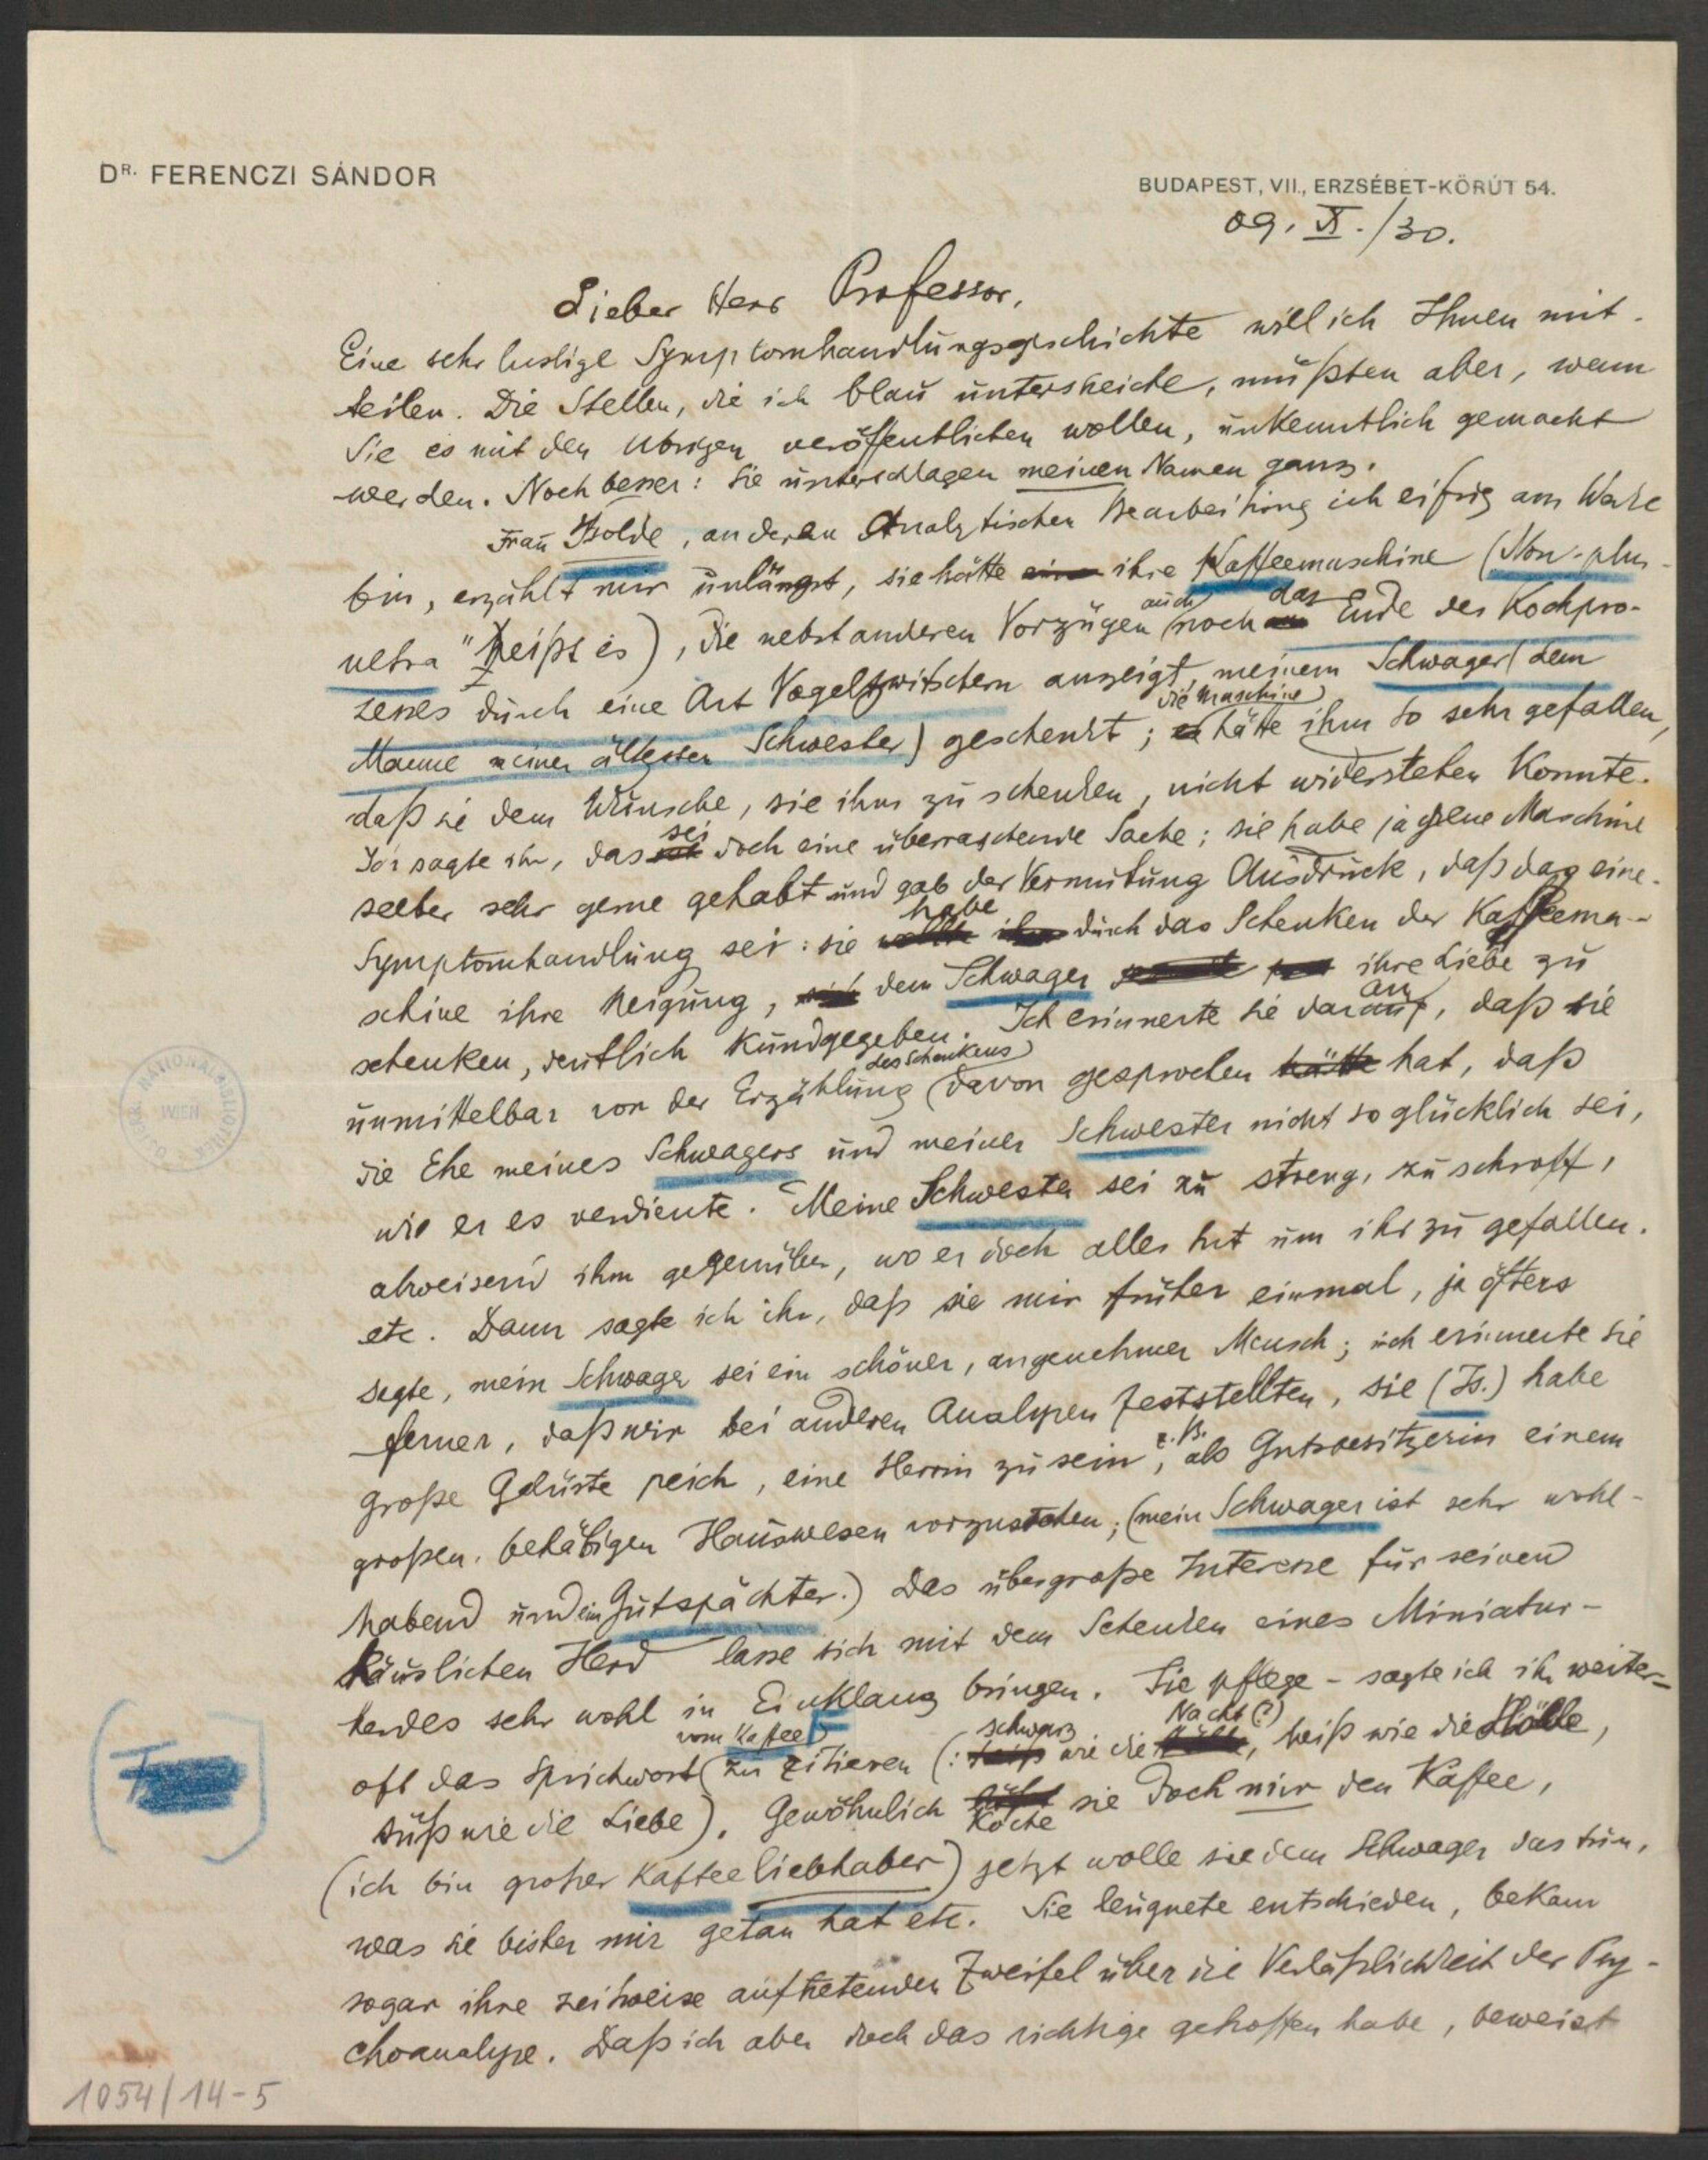 DR. FERENCZI SÁNDOR
BUDAPEST, VII., ERZSÉBET-KÖRÚT 54.
09. XI./30.
Lieber Herr Professor,
Eine sehr lustige Symptomhandlungsgeschichte will ich Ihnen mit-
teilen. Die Stellen, die ich blau unterstreiche, müßten aber, wenn
Sie es mit den übrigen veröffentlichen wollen, unkenntlich gemacht
werden. Noch besser: Sie unterschlagen meinen Namen ganz.
Frau Isolde, an deren Analytischer Bearbeitung ich eifrig am Werke
bin, erzählt mir unlängst, sie hätte ihre Kaffeemaschine (Non-plus-
ultra" heißt es), die nebst anderen Vorzügen auch noch das Ende des Kochpro-
zesses durch eine Art Vogelzwitschern anzeigt, meinem Schwager (dem
Manne meiner ältesten Schwester) geschenkt; die Maschine hätte ihm so sehr gefallen,
daß sie dem Wunsche, sie ihm zu schenken, nicht widerstehen konnte.
Ich sagte ihr, das sei doch eine überraschende Sache; sie habe ja jene Maschine
selber sehr gerne gehabt und gab der Vermutung Ausdruck, daß das eine
Symptomhandlung sei: sie habe durch das Schenken der Kaffeema-
schine ihre Neigung, dem Schwager ihre Liebe zu
schenken, deutlich kundgegeben. Ich erinnerte sie daran, daß sie
unmittelbar vor der Erzählung des Schenkens davon gesprochen hat, daß
die Ehe meines Schwagers und meiner Schwester nicht so glücklich sei,
wie er es verdiente. Meine Schwester sei zu streng, zu schroff,
abweisend ihm gegenüber, wo er doch alles tut um ihr zu gefallen.
etc. Dann sagte ich ihr, daß sie mir früher einmal, ja öfters
sagte, mein Schwager sei ein schöner, angenehmer Mensch; ich erinnerte sie
ferner, daß wir bei anderen Analysen feststellten, sie (Is.) habe
große Gelüste reich, eine Herrin zu sein, z. B. als Gutsbesitzerin einem
großen, behäbigen Hauswesen vorzustehen; (mein Schwager ist sehr wohl-
habend und ein Gutspächter.) Das übergroße Interesse für seinen
häuslichen Herd lasse sich mit dem Schenken eines Miniatur-
herdes sehr wohl in Einklang bringen. Sie pflege - sagte ich ihr weiter -
oft das Sprichwort vom Kaffee zu zitieren (: schwarz wie die Nacht (?), heiß wie die Hölle,
süß wie die Liebe). Gewöhnlich koche sie doch mir den Kaffee,
(ich bin großer Kaffeeliebhaber) jetzt wolle sie dem Schwager das tun,
was sie bisher mir getan hat etc. Sie leugnete entschieden, bekam
sogar ihre zeitweise auftretenden Zweifel über die Verläßlichkeit der Psy-
choanalyse. Daß ich aber doch das richtige getroffen habe, beweist
NATIONALBIBLIOTHEK WIEN
1054/14-5